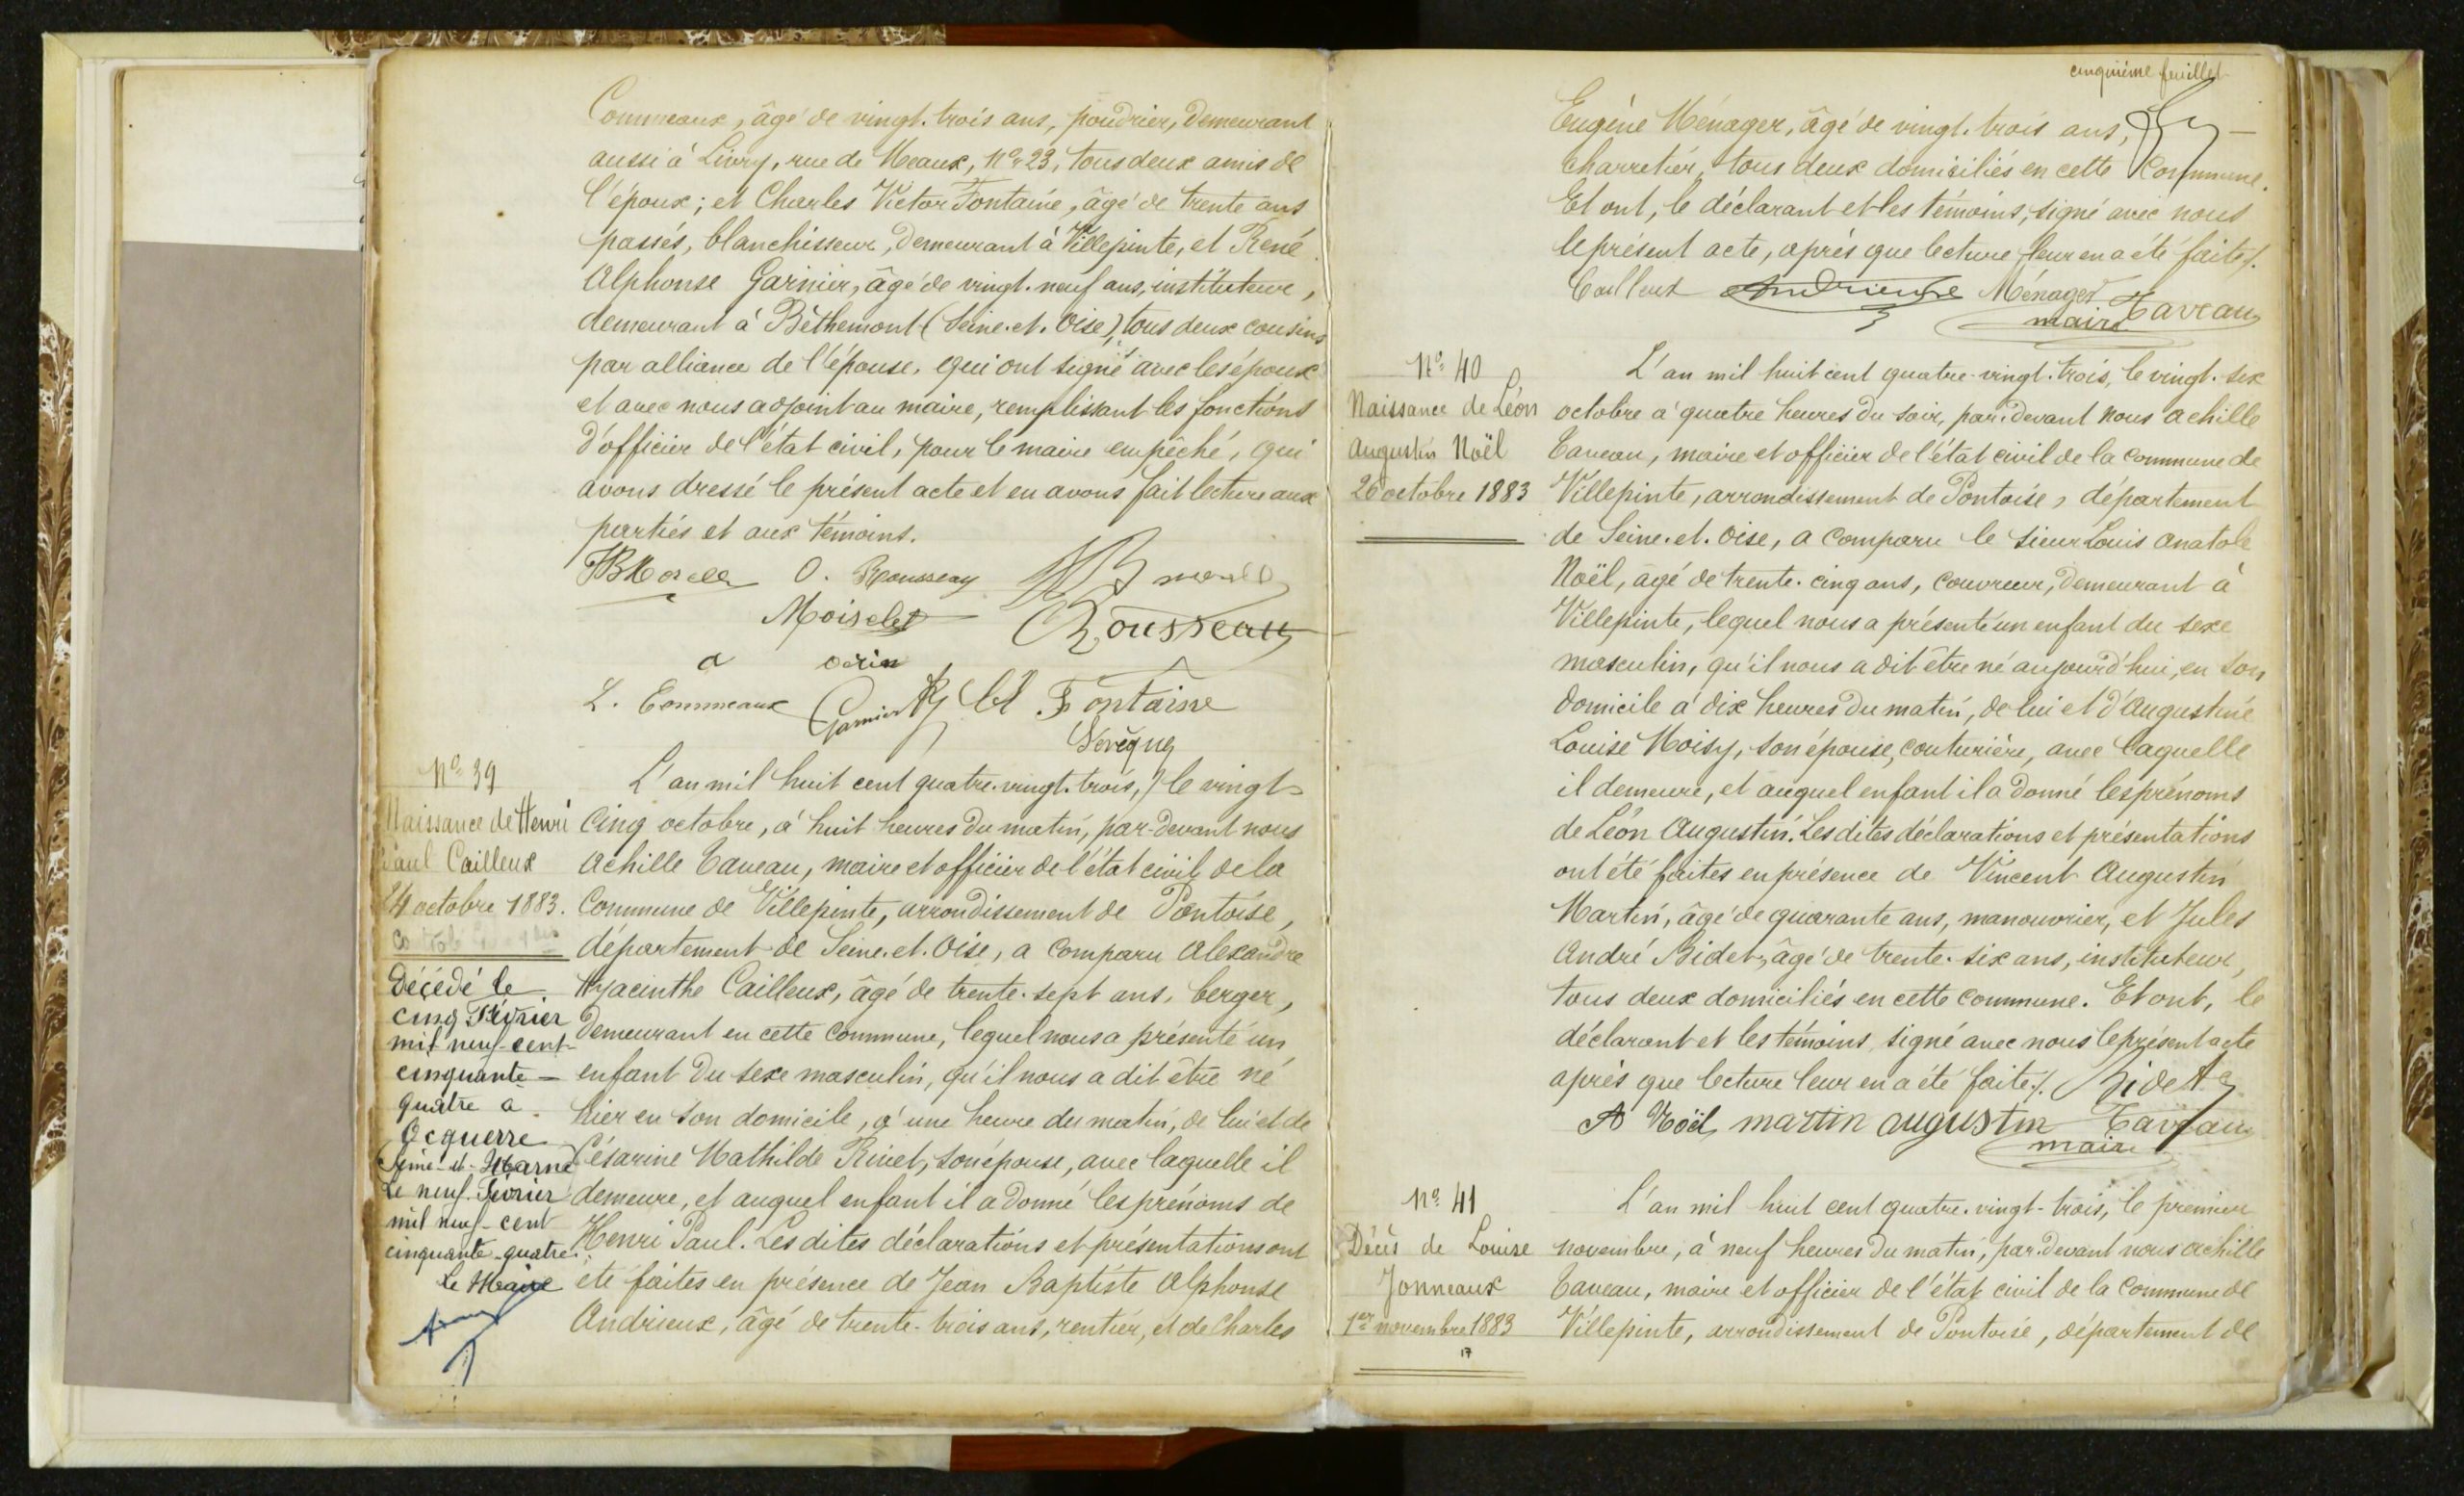 Commeaux, âgé de vingt-trois ans, poudrier, demeurant
aussi à Livry, rue de Meaux, N° 23, tous deux amis de
l'époux; et Charles Victor Fontaine, âgé de trente ans
passés, blanchisseur, demeurant à Villepinte, et René
Alphonse Garnier, âgé de vingt-neuf ans, instituteur,
demeurant à Béthemont (Seine-et-Oise), tous deux cousins
par alliance de l'épouse, qui ont signé avec les époux
et avec nous adjoint au maire, remplissant les fonctions
d'officier de l'état civil, pour le maire empêché, qui
avons dressé le présent acte et en avons fait lecture aux
parties et aux témoins.
O. Rousseau
Moiselet Rousseau
L. Commeaux Garnier R Ch Fontaine
N° 39
Naissance de Henri
Paul Cailleux
24 octobre 1883.
Décédé le
cinq Février
mil neuf-cent-
cinquante-
quatre a
Ocquerre
Seine-et-Marne
Le neuf Février
mil neuf-cent
cinquante-quatre.
Le Maire
L'an mil huit cent quatre-vingt-trois, le vingt-
cinq octobre, à huit heures du matin, par-devant nous
Achille Taveau, maire et officier de l'état civil de la
Commune de Villepinte, arrondissement de Pontoise,
département de Seine-et-Oise, a comparu Alexandre
Hyacinthe Cailleux, âgé de trente-sept ans, berger,
demeurant en cette commune, lequel nous a présenté un
enfant du sexe masculin, qu'il nous a dit être né
hier en son domicile, à une heure du matin, de lui et de
Césarine Mathilde Rinet, son épouse, avec laquelle il
demeure, et auquel enfant il a donné les prénoms de
Henri Paul. Les dites déclarations et présentations ont
été faites en présence de Jean Baptiste Alphonse
Andrieux, âgé de trente-trois ans, rentier, et de Charles
cinquième feuillet
Eugène Ménager, âgé de vingt-trois ans,
charretier, tous deux domiciliés en cette Commune.
Et ont, le déclarant et les témoins, signé avec nous
le présent acte, après que lecture leur en a été faite.
Cailleux Andrieux Ménager Taveau
maire
N° 40
Naissance de Léon
Augustin Noël
26 octobre 1883
L'an mil huit cent quatre-vingt-trois, le vingt-six
octobre à quatre heures du soir, par-devant nous Achille
Taveau, maire et officier de l'état civil de la commune de
Villepinte, arrondissement de Pontoise, département
de Seine-et-Oise, a comparu le sieur Louis Anatole
Noël, âgé de trente-cinq ans, couvreur, demeurant à
Villepinte, lequel nous a présenté un enfant du sexe
masculin, qu'il nous a dit être né aujourd'hui, en son
domicile à dix heures du matin, de lui et d'Augustine
Louise Moisy, son épouse, couturière, avec laquelle
il demeure, et auquel enfant il a donné les prénoms
de Léon Augustin. Les dites déclarations et présentations
ont été faites en présence de Vincent Augustin
Martin, âgé de quarante ans, manouvrier, et Jules
André Bidet, âgé de trente-six ans, instituteur,
tous deux domiciliés en cette commune. Et ont, le
déclarant et les témoins, signé avec nous le présent acte
après que lecture leur en a été faite. Bidet
A Noël martin augustin Taveau
maire
N° 41
Décès de Louise
Jonneaux
1er novembre 1883
17
L'an mil huit cent quatre-vingt-trois, le premier
novembre, à neuf heures du matin, par-devant nous Achille
Taveau, maire et officier de l'état civil de la commune de
Villepinte, arrondissement de Pontoise, département de